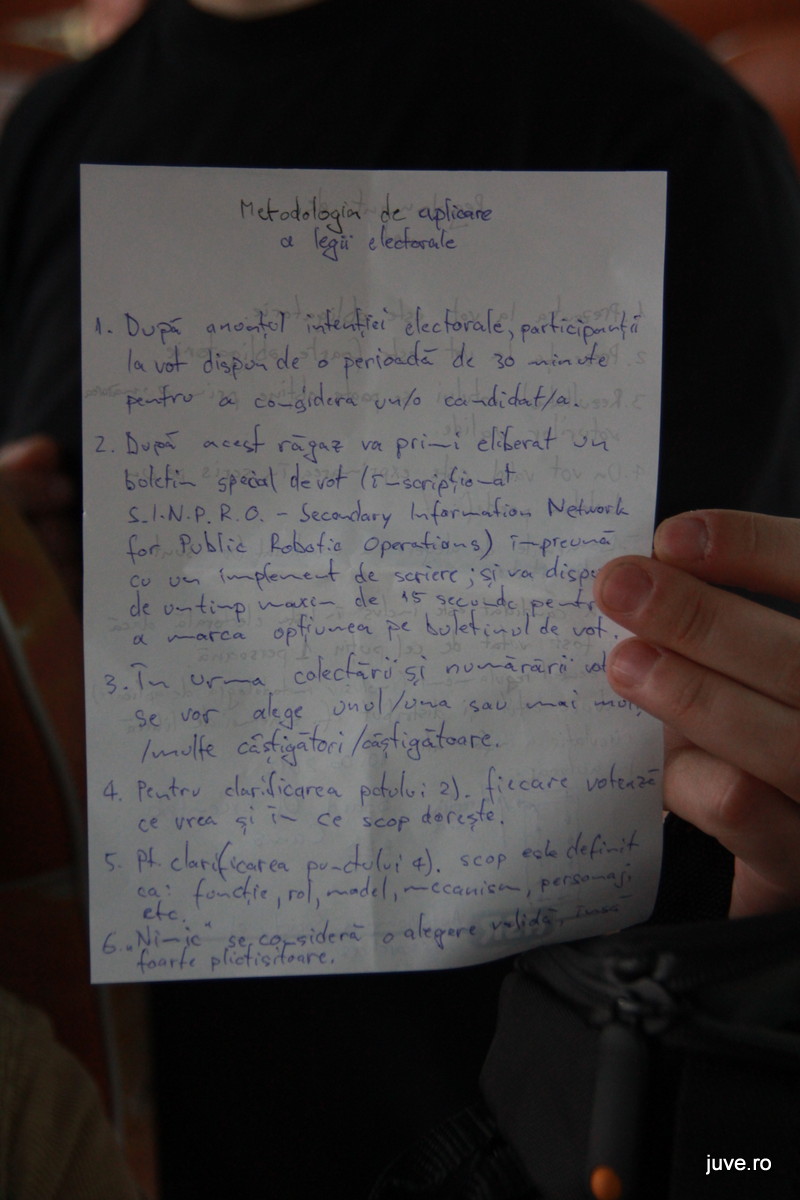 Metodologia de aplicare
a legii electorale
1. După anunțul intenției electorale, participanții
la vot dispun de o perioadă de 30 minute
pentru a considera un/o candidat/a.
2. După acest răgaz va primi eliberat un
boletin special de vot (inscripționat
S.I.N.P.R.O. - Secondary Information Network
for Public Robotic Operations) împreună
cu un implement de scriere; și va dispu
de un timp maxim de 15 secunde pentr
a marca opțiunea pe buletinul de vot.
3. În urma colectării și numărării vot
se vor alege unul/una sau mai mulț
/multe câștigători/câștigătoare.
4. Pentru clarificarea pctului 2). fiecare votează
ce vrea și în ce scop dorește.
5. Pt. clarificarea punctului 4). scop este definit
ca: funcție, rol, model, mecanism, personaj,
etc.
6. „Nimic" se consideră o alegere validă, însă
foarte plictisitoare.
juve.ro